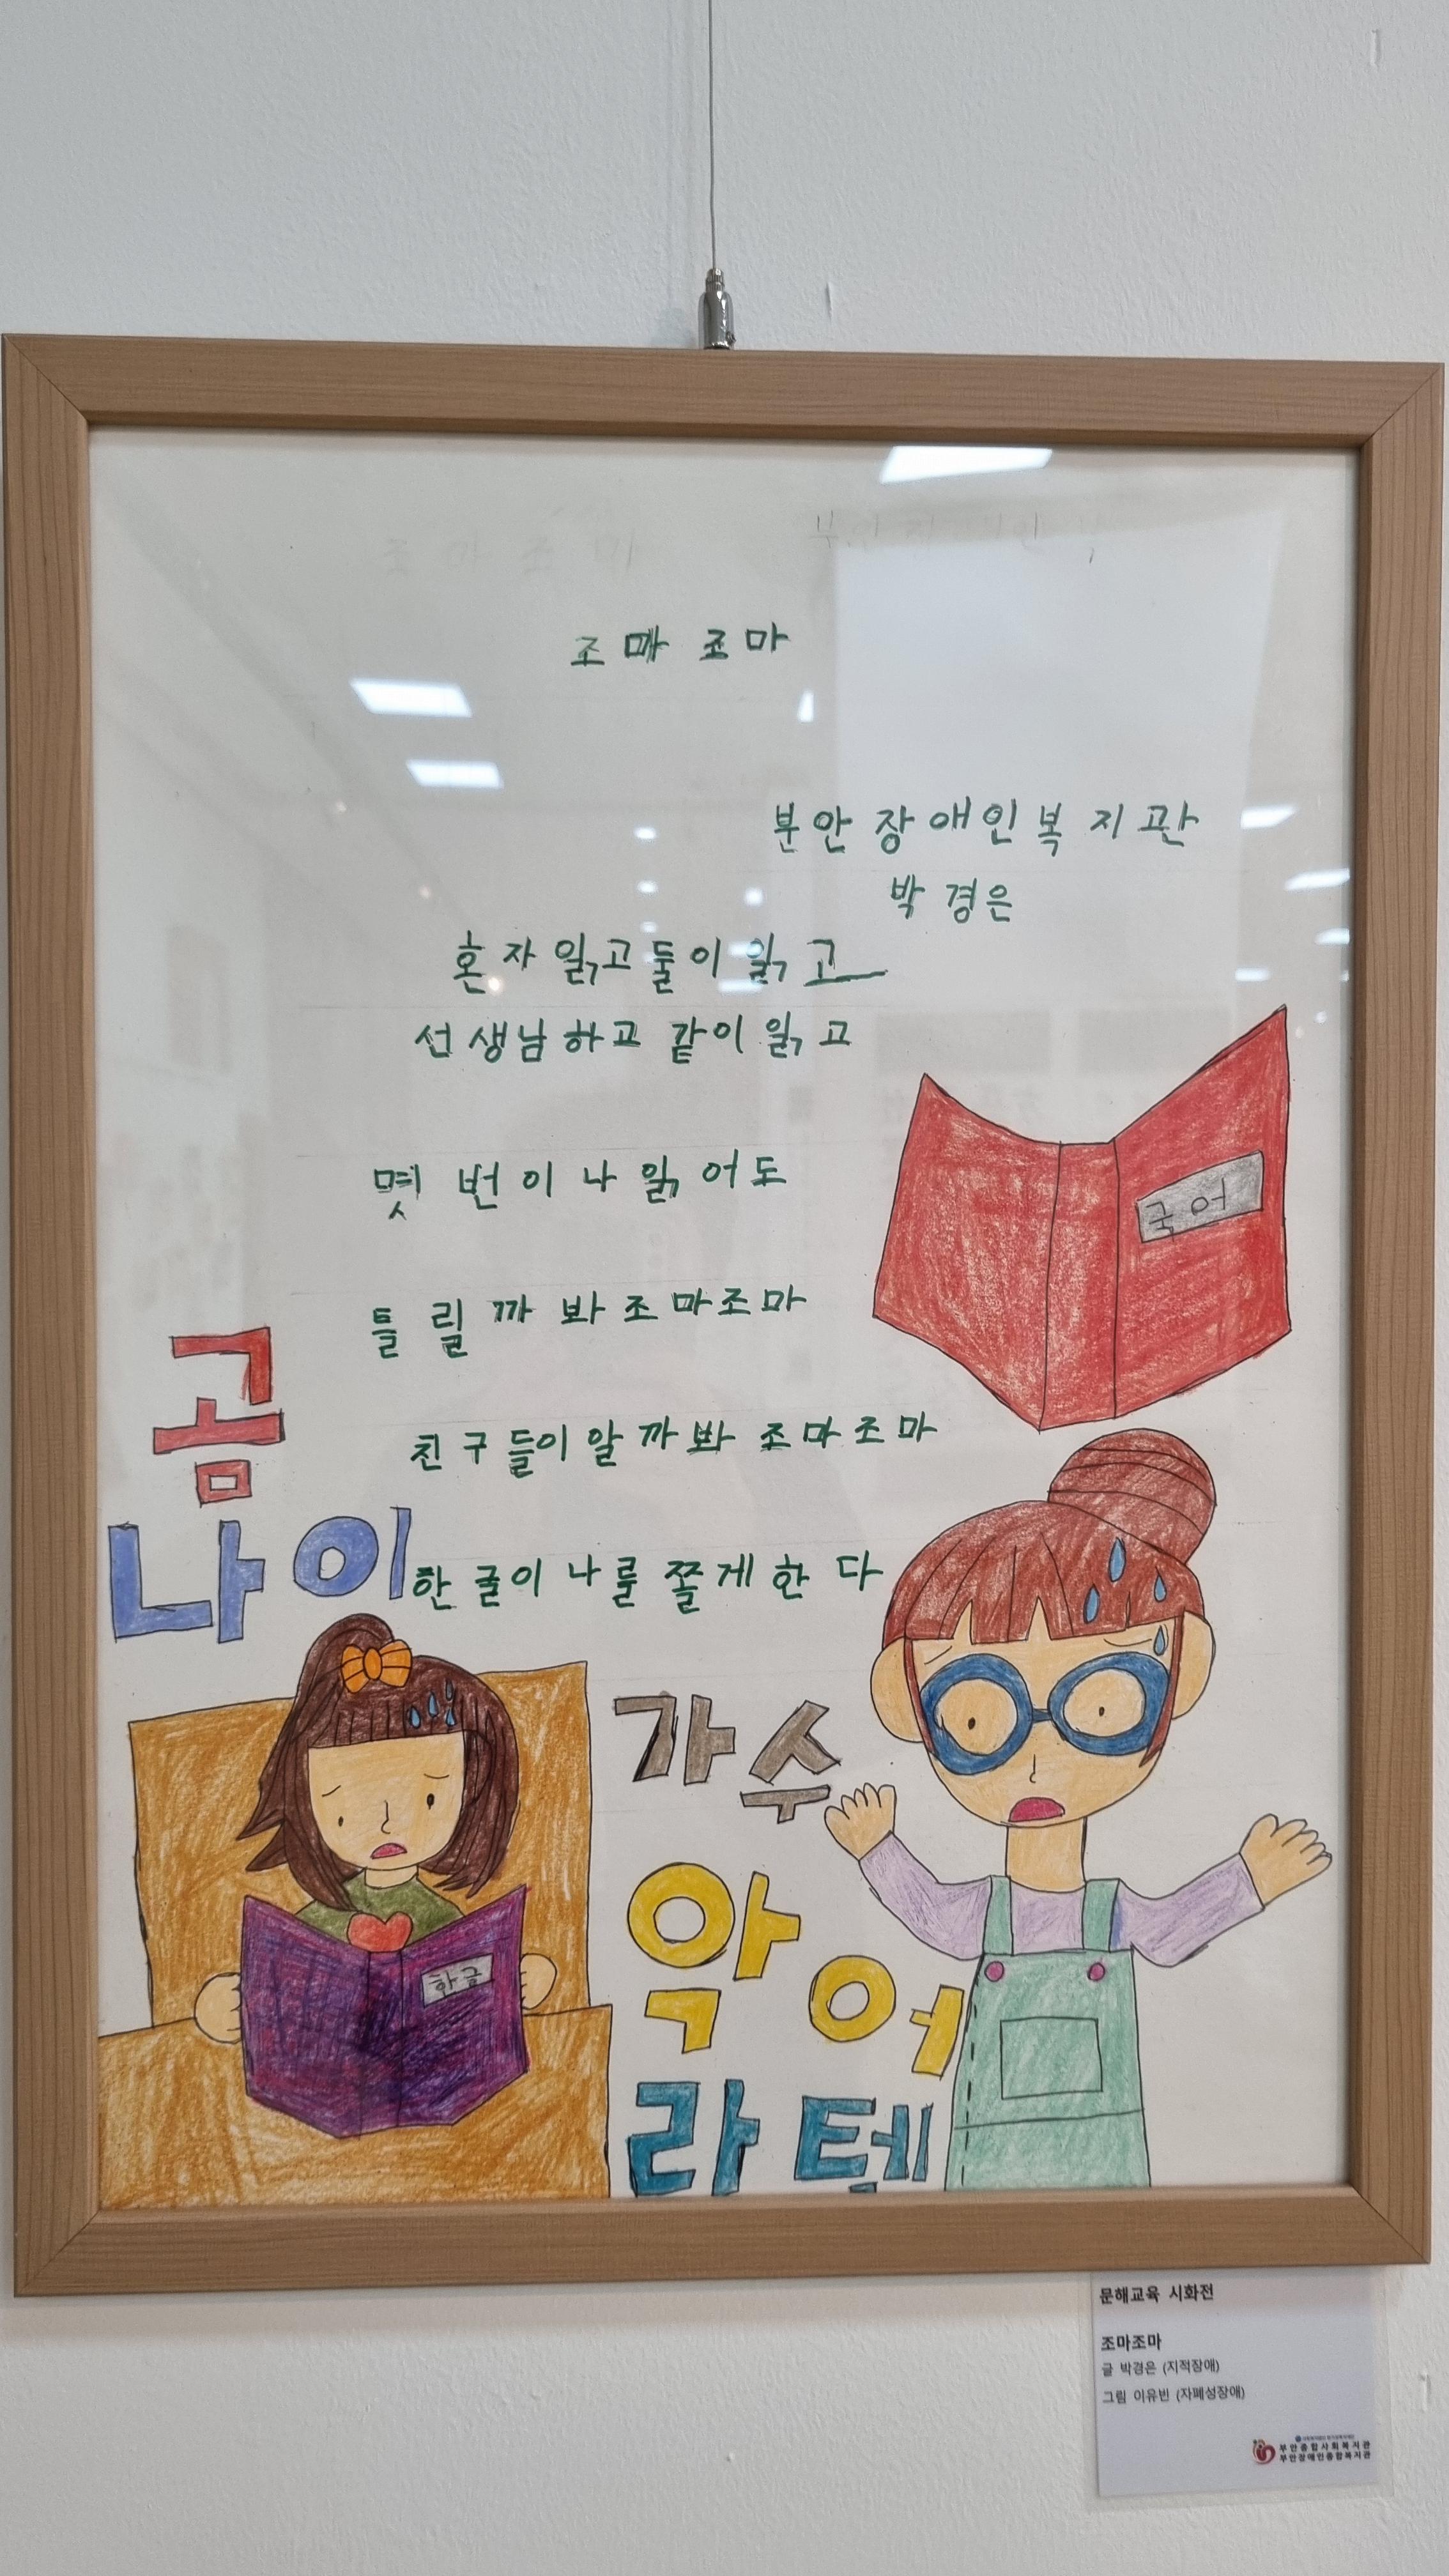 조마조마
분안장애인복지관
박경은
혼자읽고둘이읽고
선생님하고 같이읽고
몇 번이나 읽어도
틀릴까봐조마조마
친구들이알까봐 조마조마
한글이나를쫄게한다
국어
곰
나이
가수
악어
라텔
한글
문해교육 시화전
조마조마
글 박경은 (지적장애)
그림 이유빈 (자폐성장애)
부안종합사회복지관
부안장애인종합복지관